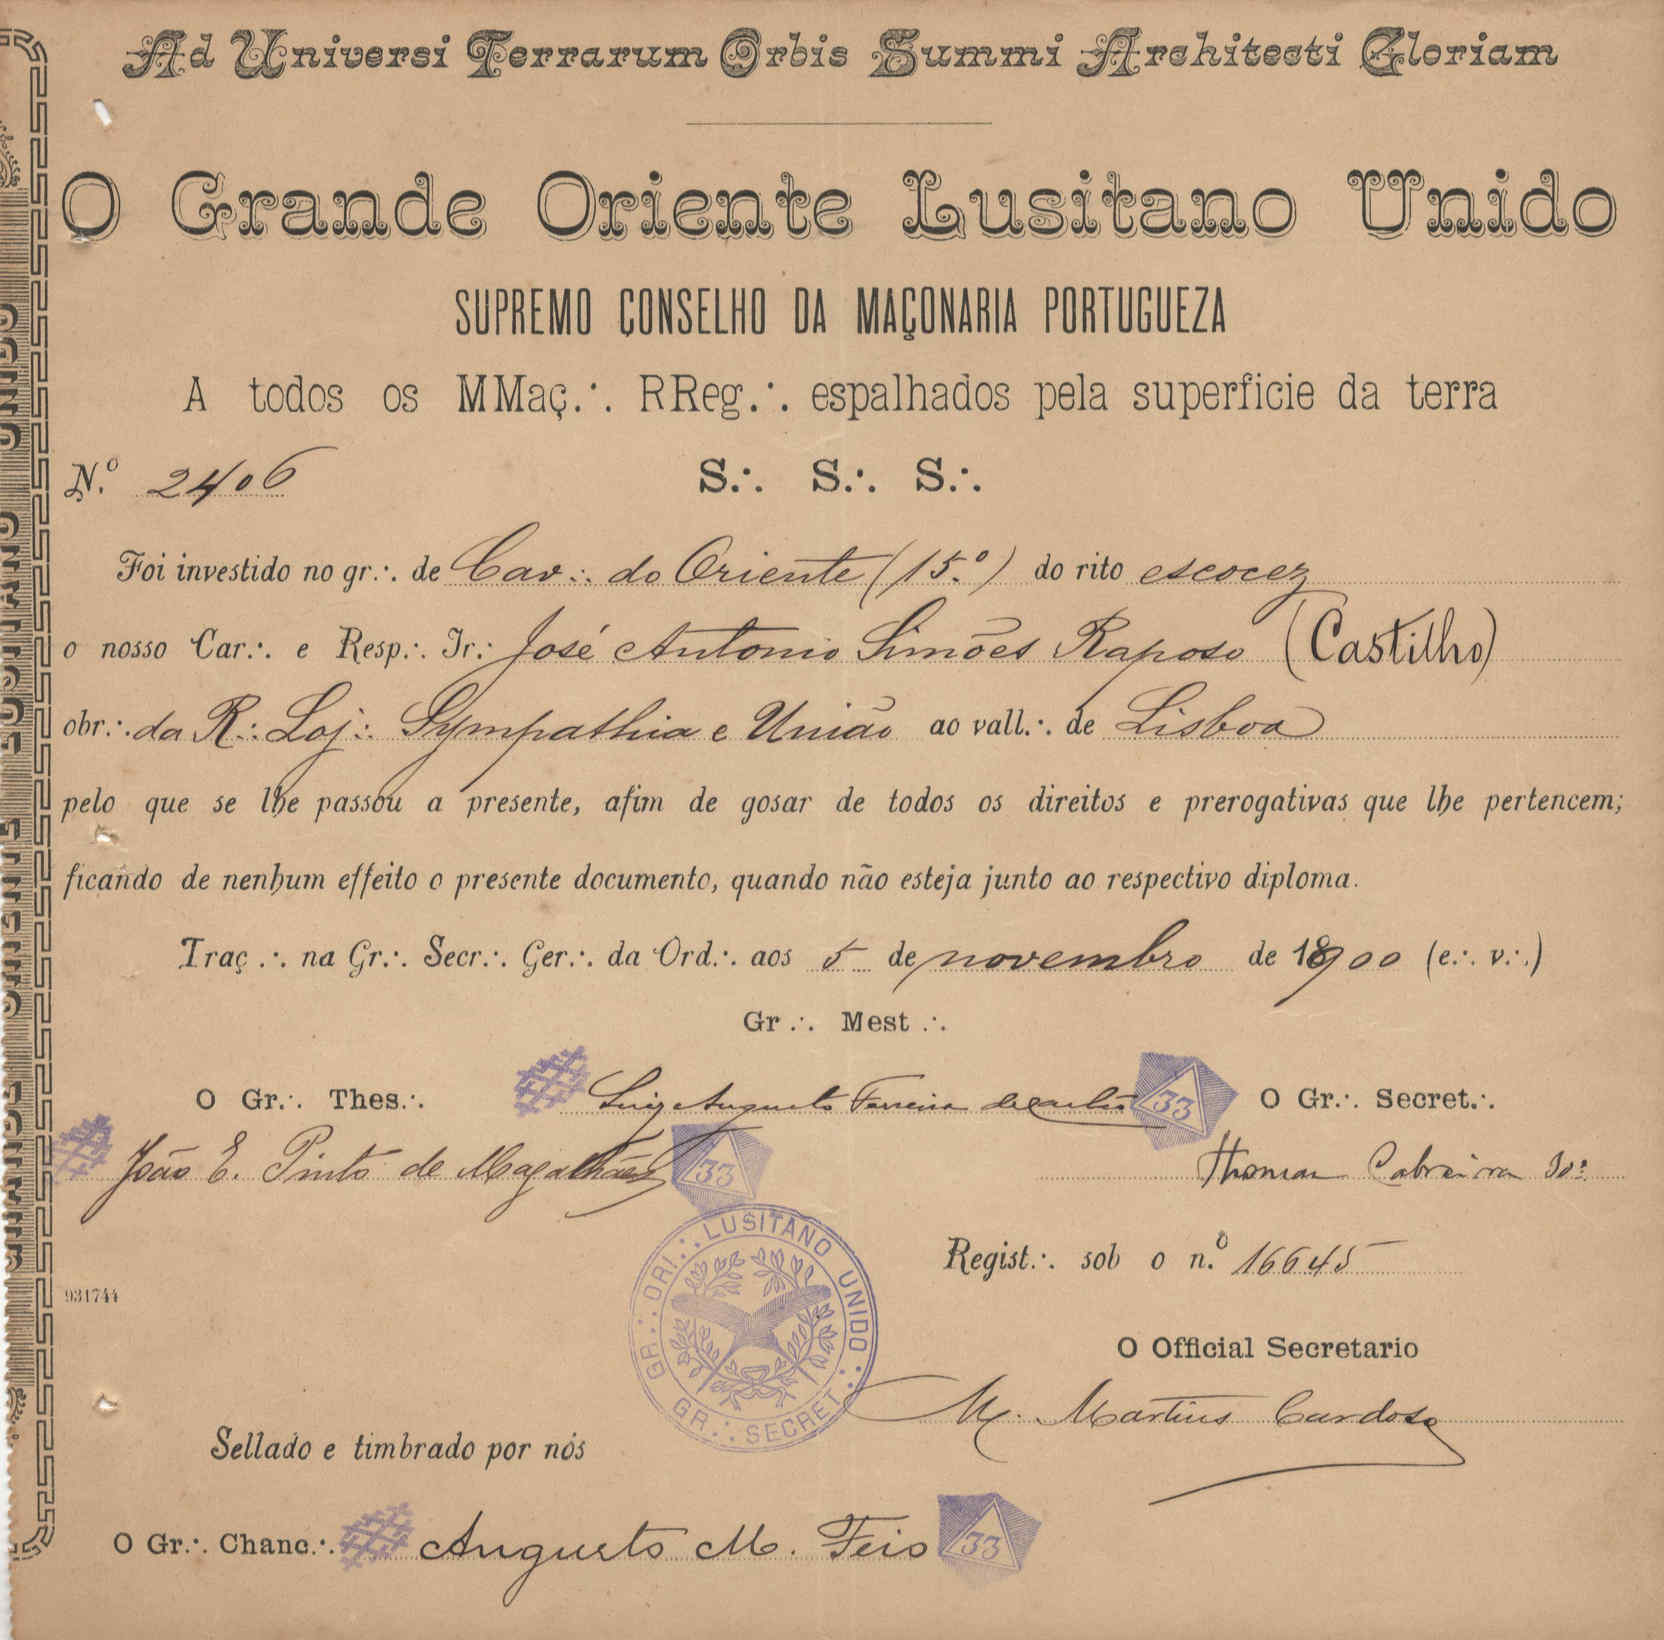 Ad Universi Terrarum Orbis Summi Architecti Gloriam
O Grande Oriente Lusitano Unido
SUPREMO CONSELHO DA MAÇONARIA PORTUGUEZA
A todos os MMaç.∴ RReg.∴ espalhados pela superficie da terra
N.º 2406 S.∴ S.∴ S.∴
Foi investido no gr.∴ de Cav.∴ do Oriente (15.º) do rito escocez
o nosso Car.∴ e Resp.∴ Ir.∴ José Antonio Simões Raposo (Castilho)
obr.∴ da R.∴ Loj.∴ Sympathia e União ao vall.∴ de Lisboa
pelo que se lhe passou a presente, afim de gosar de todos os direitos e prerogativas que lhe pertencem;
ficando de nenhum effeito o presente documento, quando não esteja junto ao respectivo diploma.
Traç.∴ na Gr.∴ Secr.∴ Ger.∴ da Ord.∴ aos 5 de novembro de 1900 (e.∴ v.∴)
Gr.∴ Mest.∴
O Gr.∴ Thes.∴ Luiz Augusto Ferreira de 33 O Gr.∴ Secret.∴
João E. Pinto de Magalhães 33 Thomaz Cabreira
GR.∴ ORI.∴ LUSITANO UNIDO
GR.∴ SECRET.∴
Regist.∴ sob o n.º 16645
931744
O Official Secretario
M. Martins Cardoso
Sellado e timbrado por nós
O Gr.∴ Chanc.∴ Augusto M. Feio 33